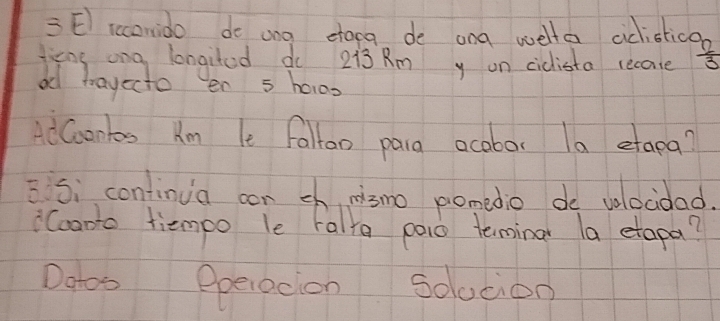 3 El recorrido de una etapa de una vuelta ciclistica
tiene una longitud de 213 Km y un ciclista recorre
del trayecto en 5 horas
A ¿Cuantos Km le faltan para acabar la etapa?
B Si continúa con el mismo promedio de velocidad.
¿Cuanto tiempo le falta para terminar la etapa?
Datos Operacion Solucion